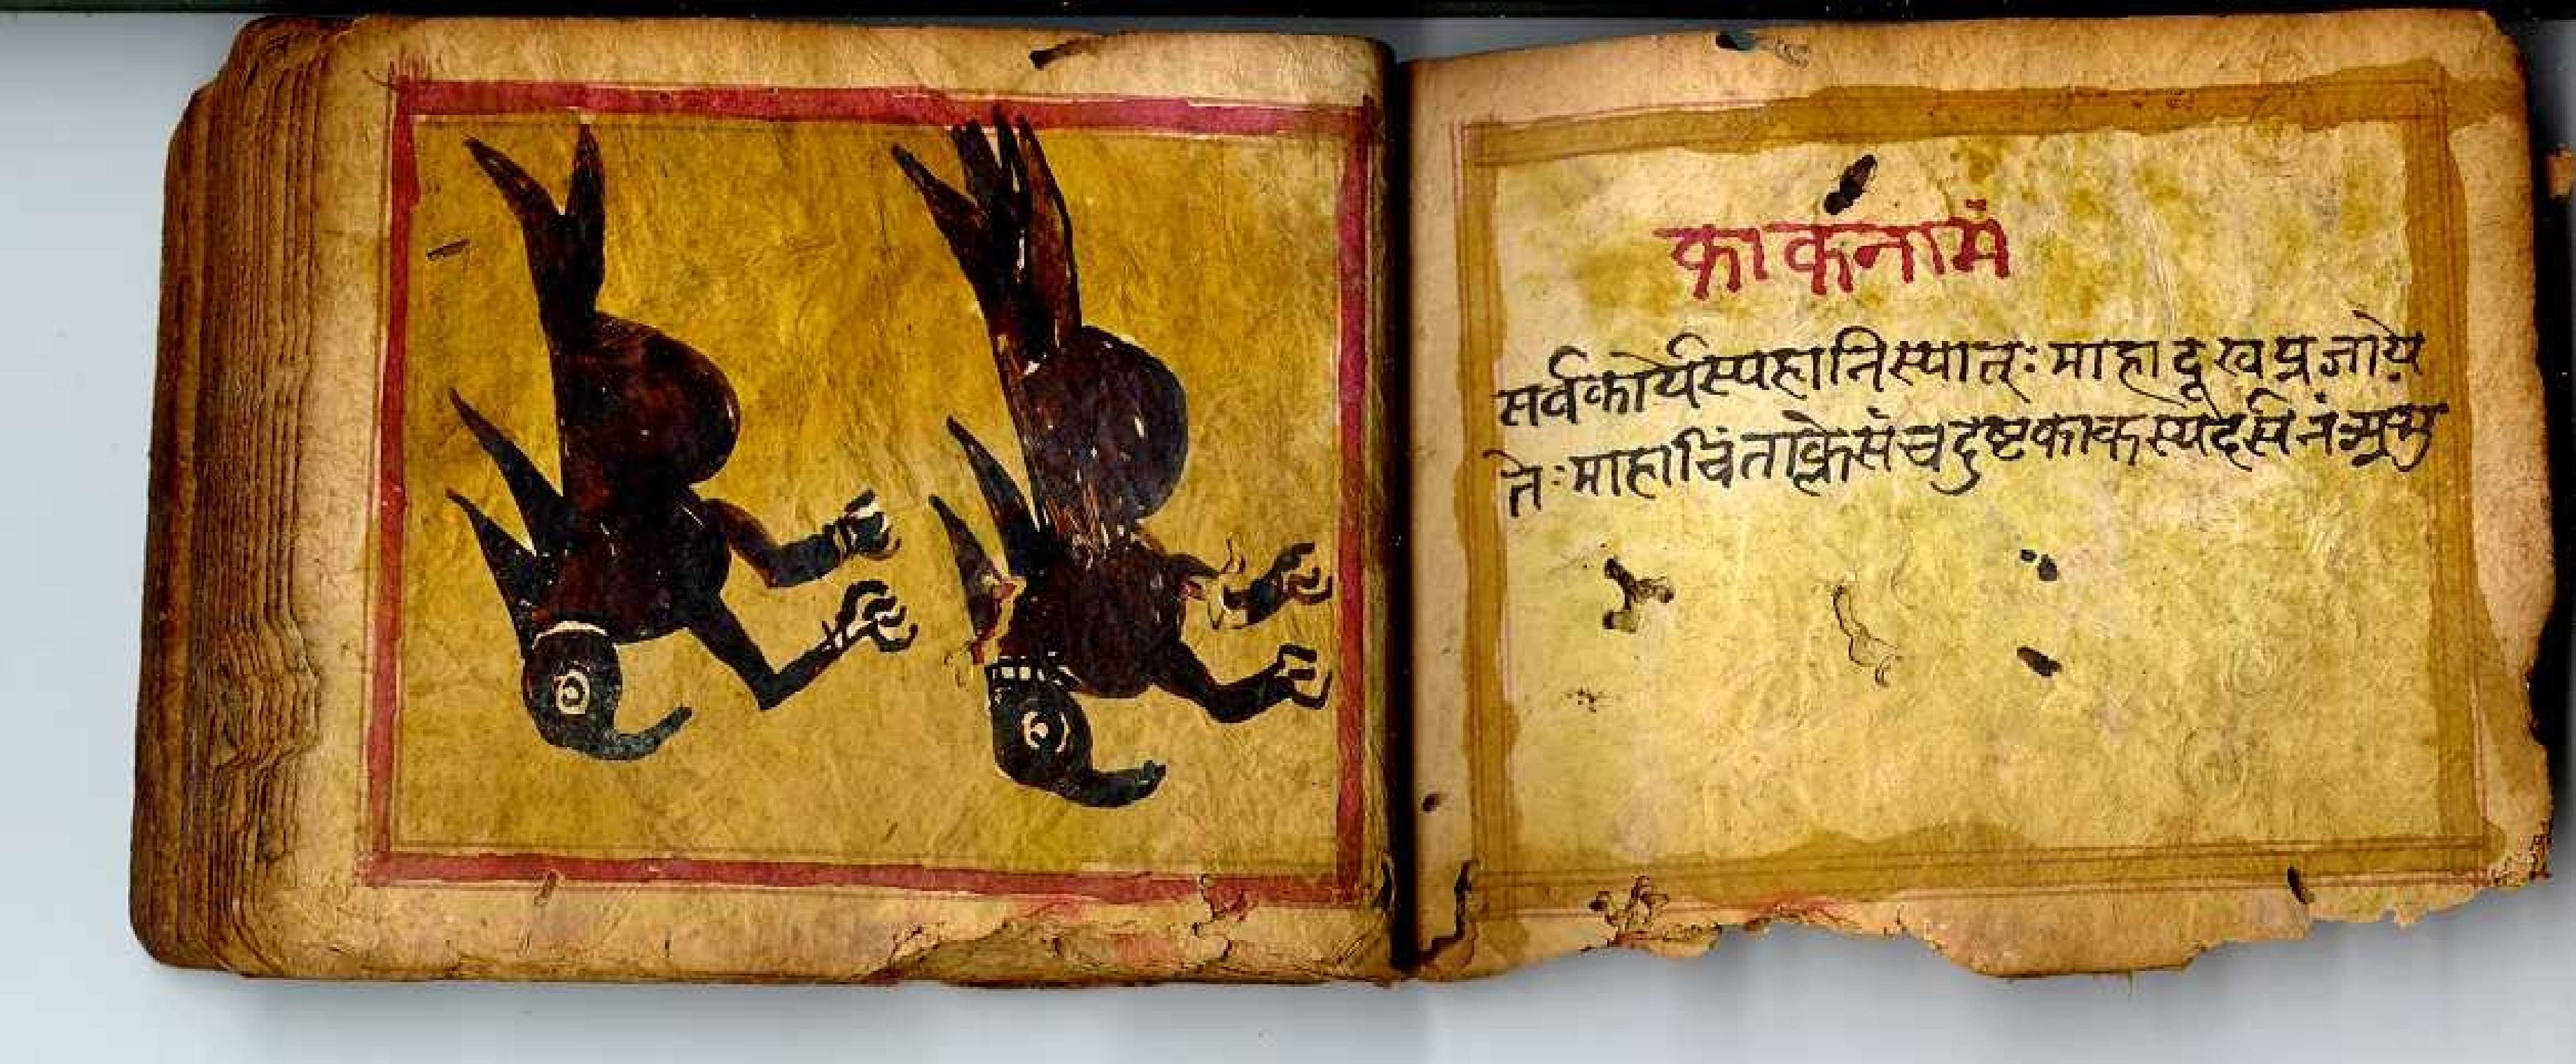 काकनामं
सर्वकार्यस्यहानिस्यात्ः माहादूखप्रजाये
तेः माहाचिंताक्लेसंचदुष्टकाकस्यदर्सनं